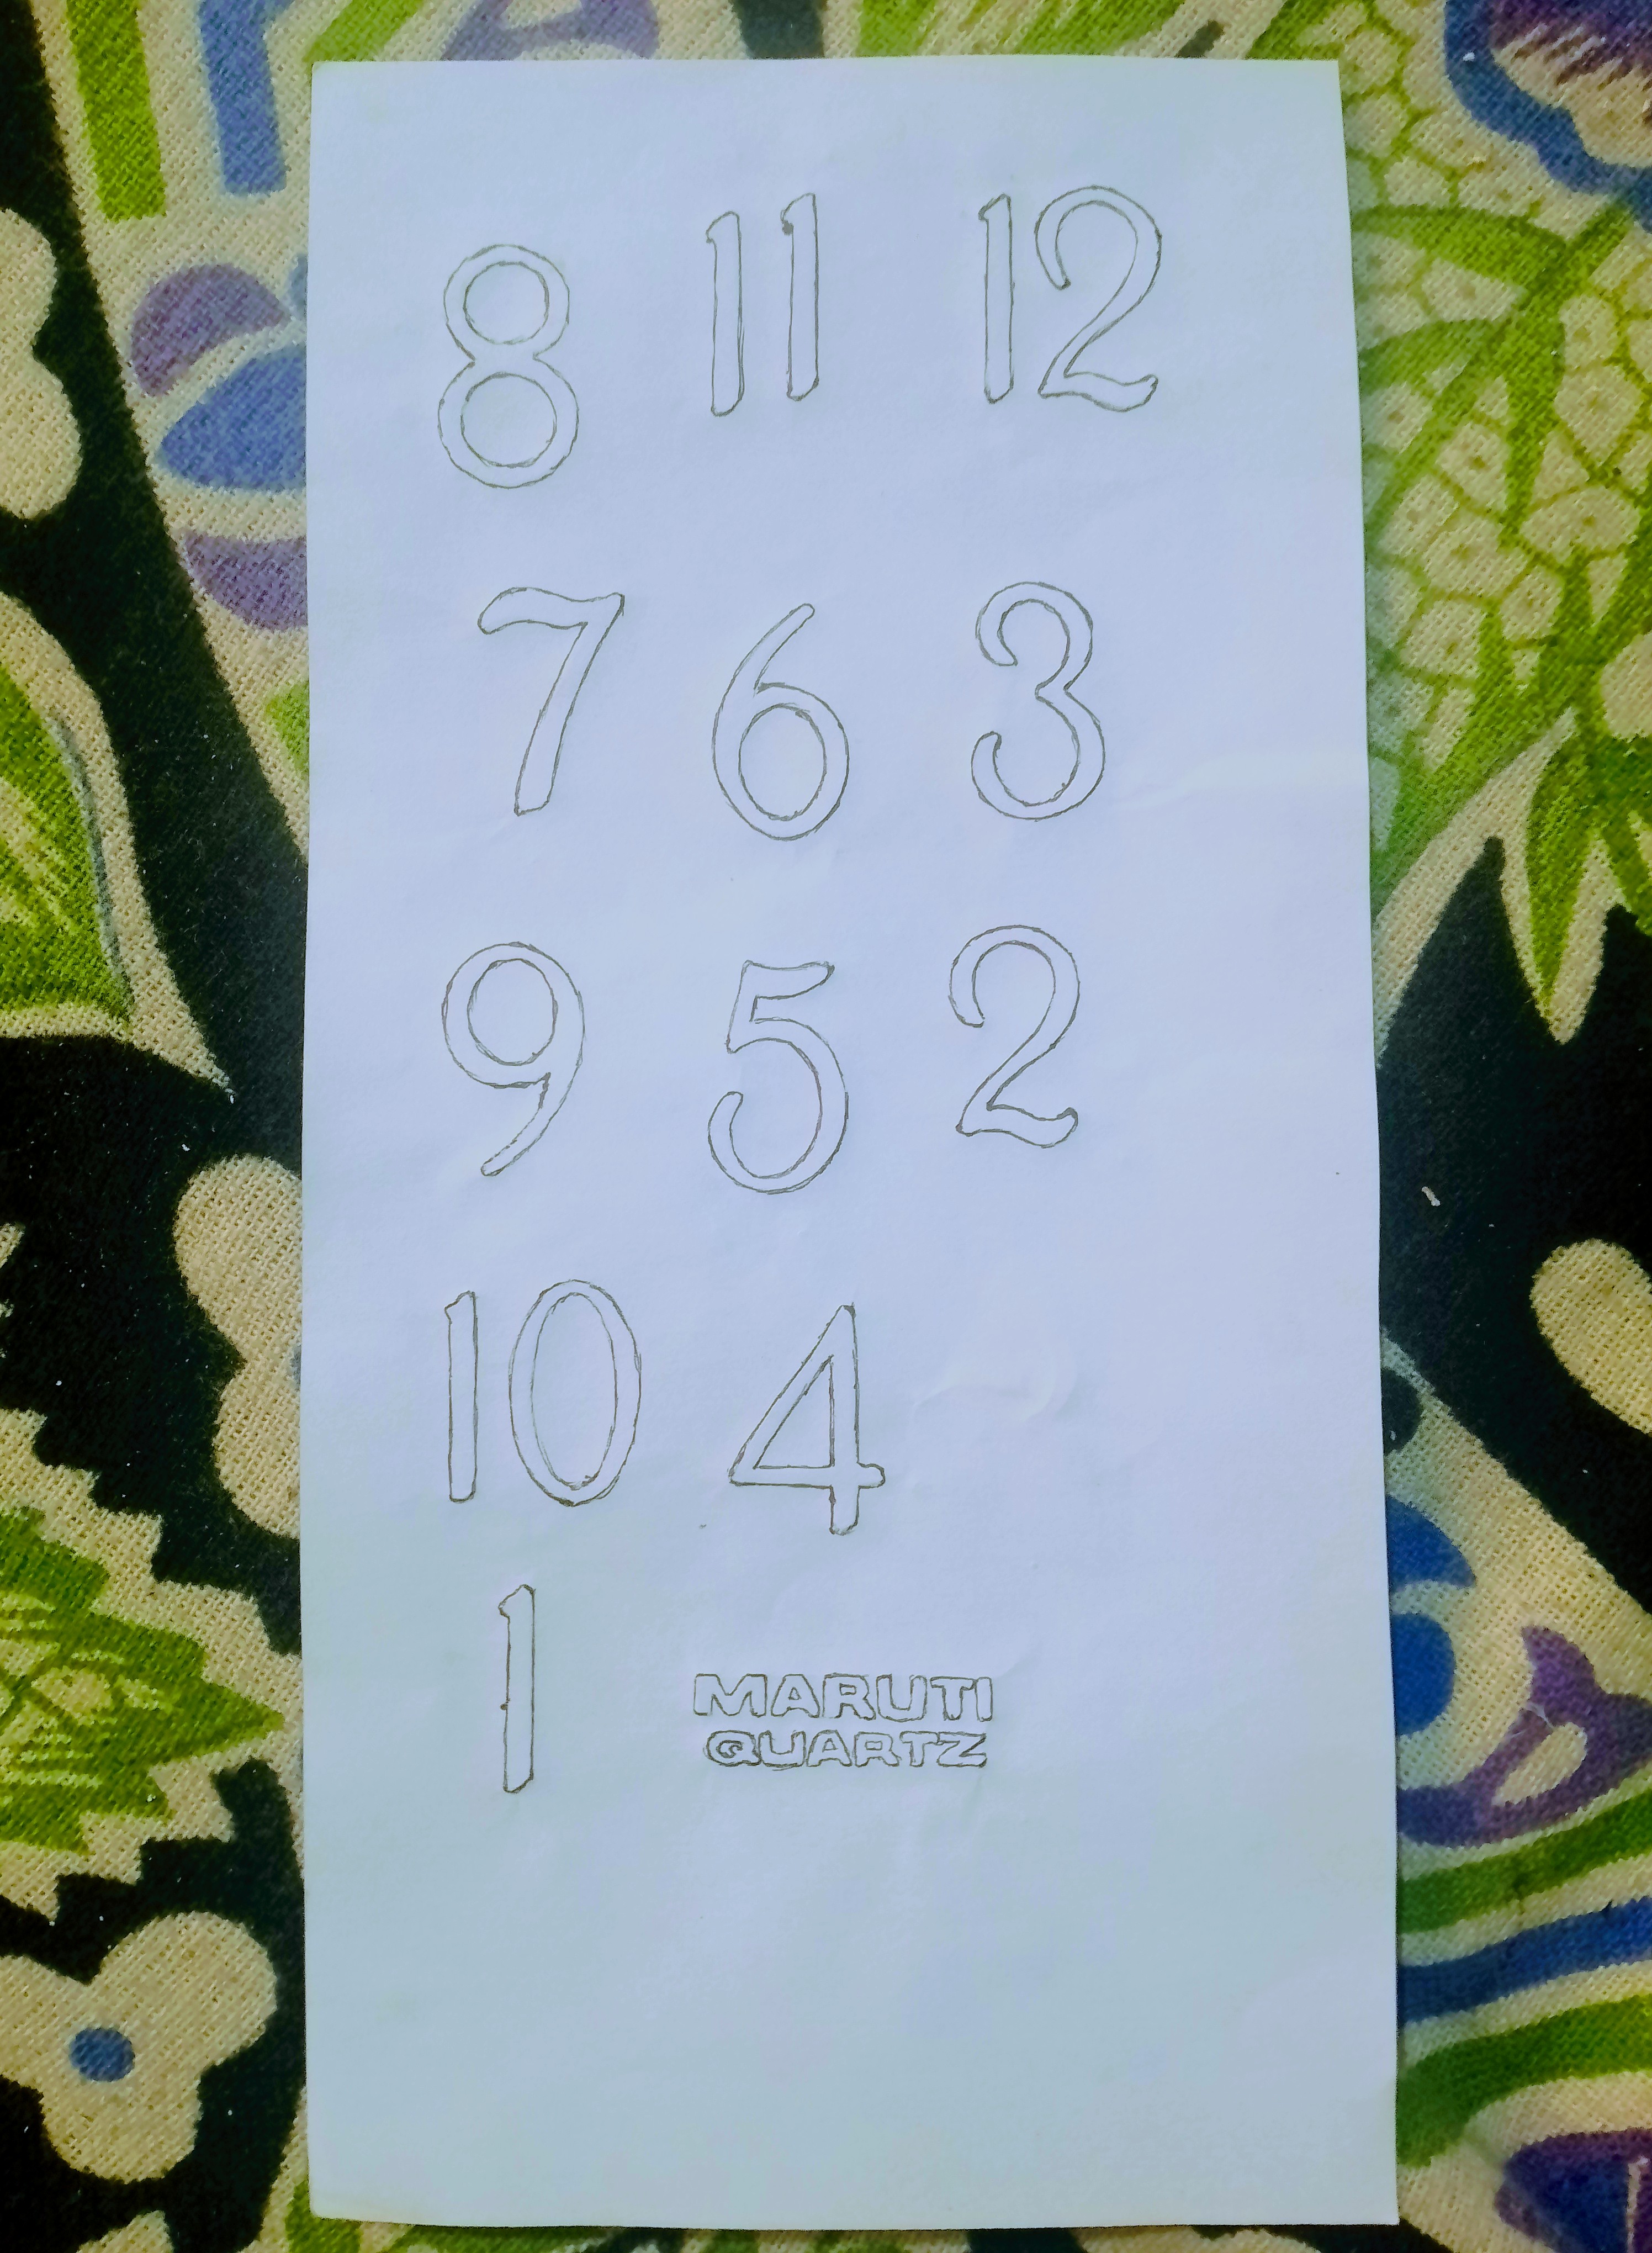 8 11 12
7 6 3
9 5 2
10 4
1
MARUTI
QUARTZ